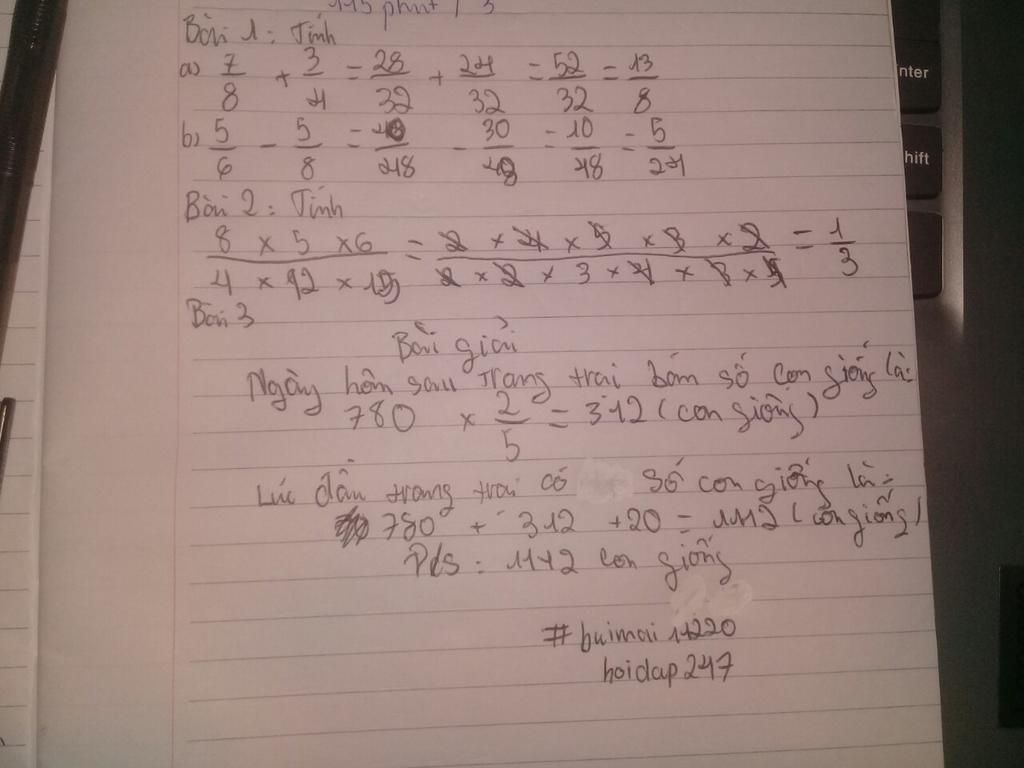 115 phút / 3
Bài 1: Tính
a) 7/8 + 3/4 = 28/32 + 24/32 = 52/32 = 13/8
b) 5/6 - 5/8 = 40/48 - 30/48 = 10/48 = 5/24
Bài 2: Tính
8 × 5 × 6 / 4 × 12 × 15 = 2 × 4 × 5 × 3 × 2 / 2 × 2 × 3 × 4 × 3 × 5 = 1/3
Bài 3
Bài giải
Ngày hôm sau trang trại bám số con giống là:
780 × 2/5 = 312 (con giống)
Lúc đầu trang trại có số con giống là:
780 + 312 + 20 = 1112 (con giống)
Đ/S: 1112 con giống
#buimai11220
hoidap247
nter
hift